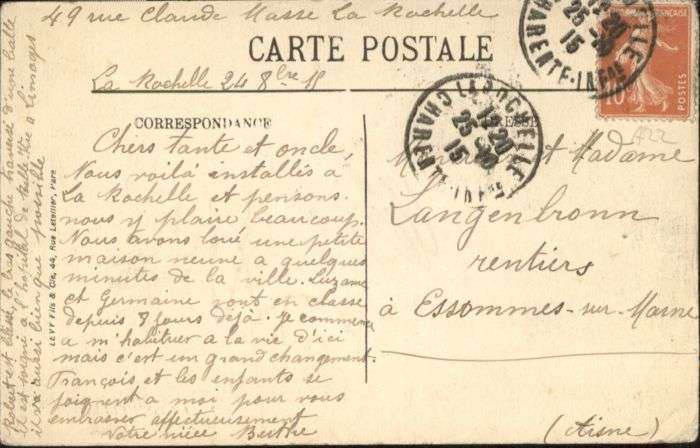 49 rue Claude Masse La Rochelle
CARTE POSTALE
La Rochelle 24 8bre 15
CORRESPONDANCE
Chers tante et oncle,
Nous voilà installés à
La Rochelle et pensons
nous y plaire beaucoup.
Nous avons loué une petite
maison neuve a quelques
minutes de la ville. Suzanne
et Germaine vont en classe
depuis 8 jours déjà. Je commence
a m'habituer a la vie d'ici
mais c'est un grand changement.
François et les enfants se
joignent a moi pour vous
embrasser affectueusement
Votre nièce Berthe
Robert est blessé le bras gauche traversé d'une balle
Il est soigné a l'hôpital de à Limoges
il va aussi bien que possible
LEVY Fils & Cie, 44, Rue Letellier, Paris
ADRESSE
Monsieur et Madame
Langenbronn
rentiers
à Essommes-sur-Marne
(Aisne)
LA ROCHELLE
12 20
25 -10
15
CHARENTE-INFRE
LA ROCHELLE
12 20
25 -10
15
CHARENTE-INFRE
10
POSTES
A22